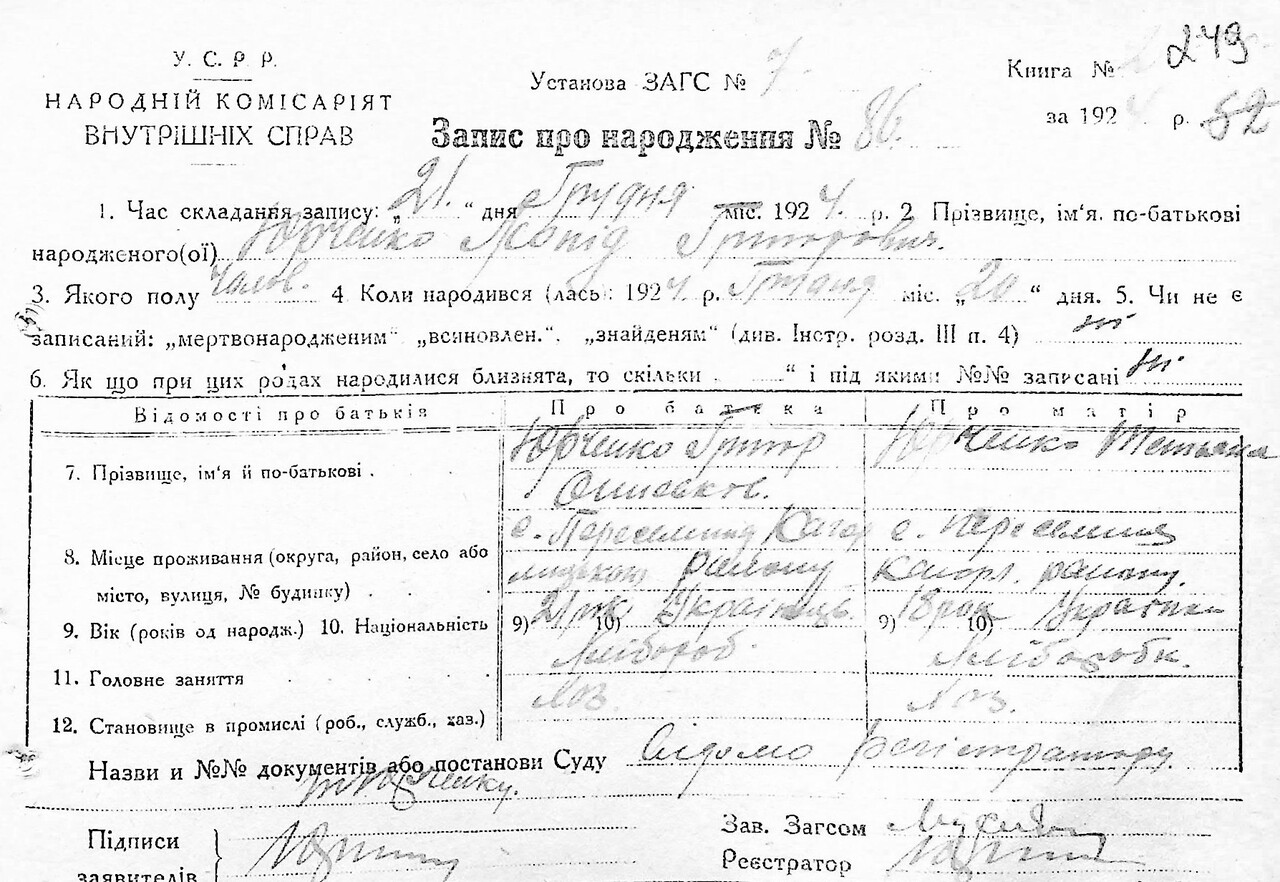 249
У. С. Р. Р.
НАРОДНІЙ КОМІСАРІЯТ
ВНУТРІШНІХ СПРАВ
Установа ЗАГС № 7
Книга №
за 1924 р. 52
Запис про народження № 86.
1. Час складання запису: „21.“ дня Грудня міс. 1924. р. 2 Прізвище, ім‘я. по-батькові
народженого(ої) Юрченко Леонід Григорович.
3. Якого полу Чолов. 4 Коли народився (лась): 1924 р. Грудня міс. „20“ дня. 5. Чи не є
записаний: „мертвонародженим“ „всиновлен.“. „знайденям“ (див. Інстр. розд. III п. 4) ні
6. Як що при цих родах народилися близнята, то скільки . “ і під якими №№ записані ні
Відомості про батьків Про батька Про матір
7. Прізвище, ім‘я й по-батькові . Юрченко Григор Юрченко Тетьяна
8. Місце проживання (округа, район, село або
місто, вулиця, № будинку) . .
с. Переселення Кагар
лицького Району
с. Переселення
Кагорл. району.
9. Вік (років од народж.) 10. Національність 9) 21 рік 10) Українець 9) 18 рок 10) Українка
11. Головне заняття . . . . Хлібороб. Хліборобк.
12. Становище в промислі (роб., служб., хаз.) Хоз. Хоз.
Назви и №№ документів або постанови Суду Відомо Регістратору
Підписи
заявителів
Зав. Загсом
Реєстратор